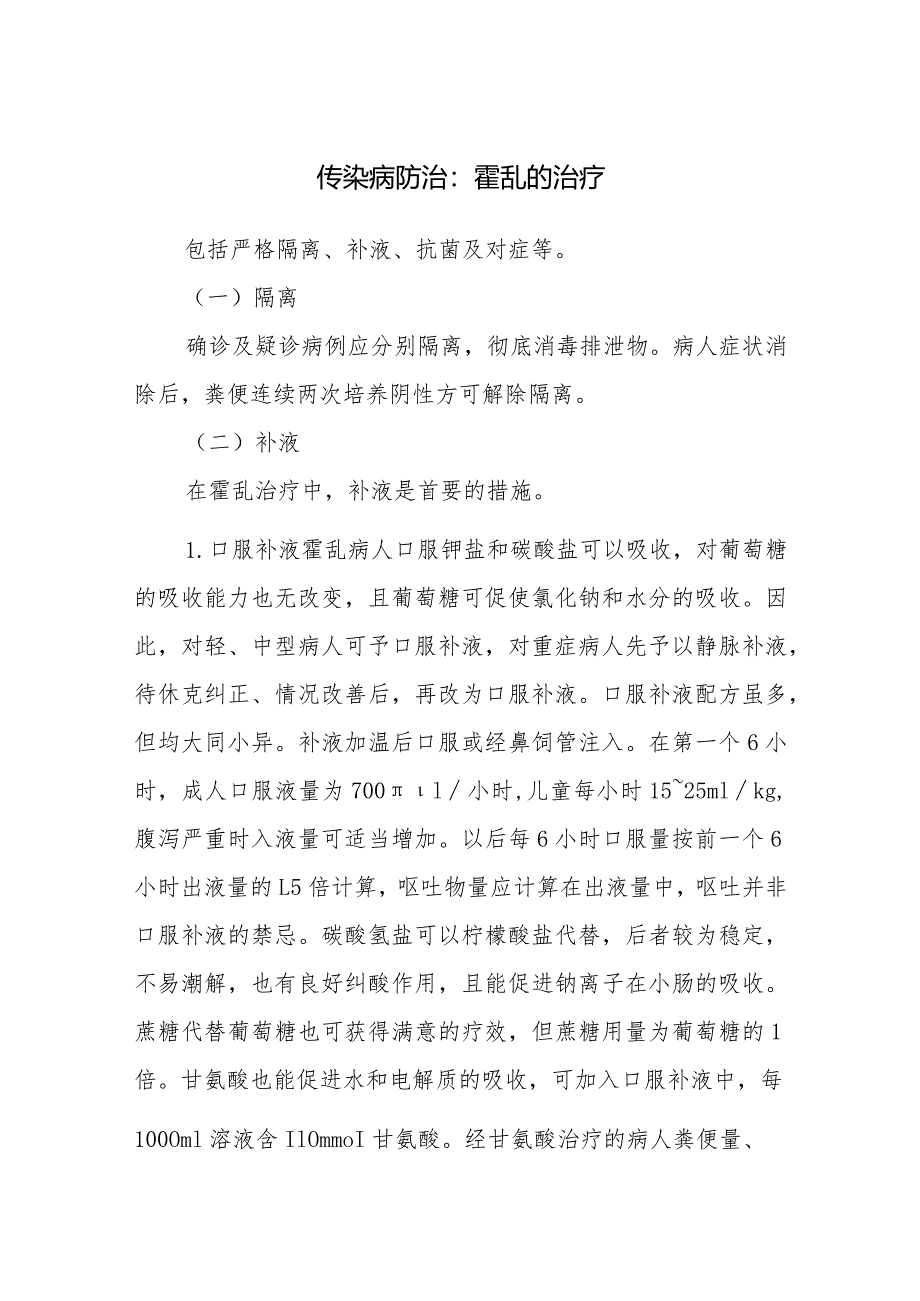 传染病防治：霍乱的治疗
包括严格隔离、补液、抗菌及对症等。
（一）隔离
确诊及疑诊病例应分别隔离，彻底消毒排泄物。病人症状消
除后，粪便连续两次培养阴性方可解除隔离。
（二）补液
在霍乱治疗中，补液是首要的措施。
1.口服补液霍乱病人口服钾盐和碳酸盐可以吸收，对葡萄糖
的吸收能力也无改变，且葡萄糖可促使氯化钠和水分的吸收。因
此，对轻、中型病人可予口服补液，对重症病人先予以静脉补液，
待休克纠正、情况改善后，再改为口服补液。口服补液配方虽多，
但均大同小异。补液加温后口服或经鼻饲管注入。在第一个6小
时，成人口服液量为700πιl／小时,儿童每小时15~25ml／kg,
腹泻严重时入液量可适当增加。以后每6小时口服量按前一个6
小时出液量的L5倍计算，呕吐物量应计算在出液量中，呕吐并非
口服补液的禁忌。碳酸氢盐可以柠檬酸盐代替，后者较为稳定，
不易潮解，也有良好纠酸作用，且能促进钠离子在小肠的吸收。
蔗糖代替葡萄糖也可获得满意的疗效，但蔗糖用量为葡萄糖的1
倍。甘氨酸也能促进水和电解质的吸收，可加入口服补液中，每
1000ml溶液含IlOmmoI甘氨酸。经甘氨酸治疗的病人粪便量、